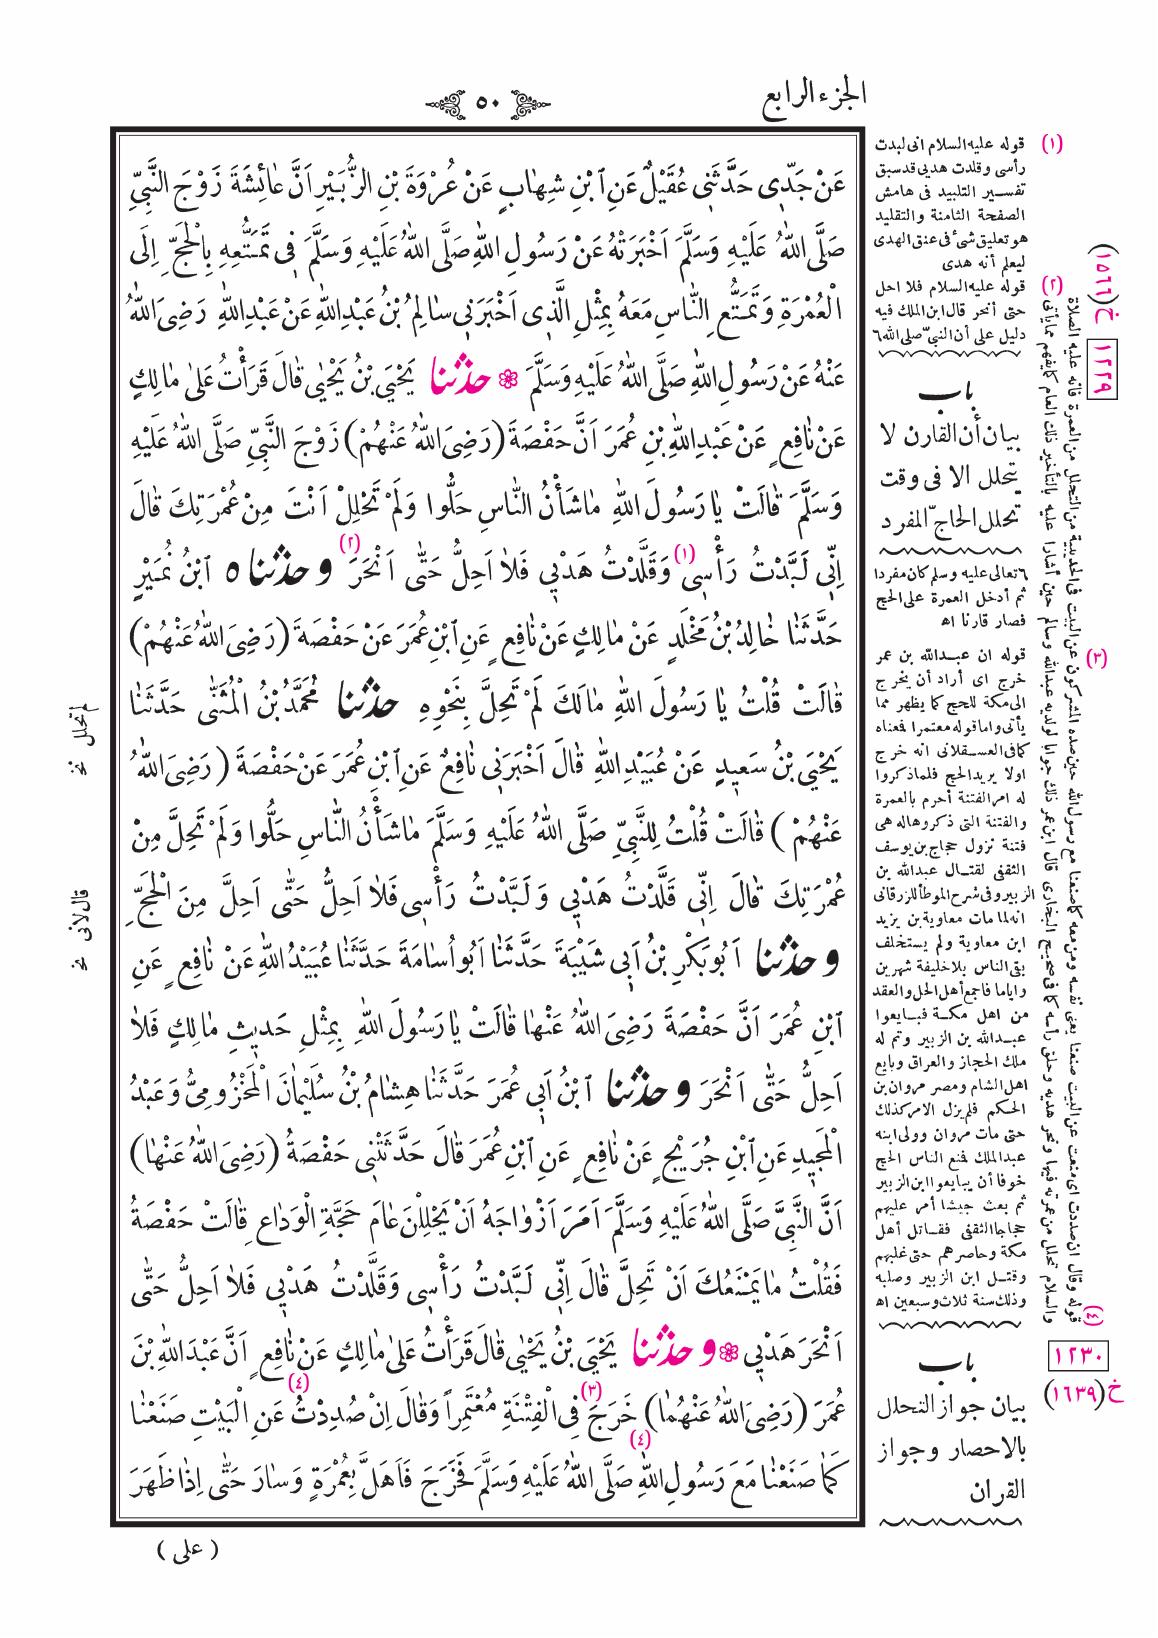 الجزء الرابع
٥٠
عَنْ جَدّٖى حَدَّثَنٖى عُقَيْلٌ عَنِ ابْنِ شِهَابٍ عَنْ عُرْوَةَ بْنِ الزُّبَيْرِ اَنَّ عَائِشَةَ زَوْجَ النَّبِيِّ
صَلَّى اللهُ عَلَيْهِ وَسَلَّمَ اَخْبَرَتْهُ عَنْ رَسُولِ اللهِ صَلَّى اللهُ عَلَيْهِ وَسَلَّمَ فٖى تَمَتُّعِهِ بِالْحَجِّ اِلَى
الْعُمْرَةِ وَتَمَتُّعِ النَّاسِ مَعَهُ بِمِثْلِ الَّذٖى اَخْبَرَنٖى سَالِمُ بْنُ عَبْدِ اللهِ عَنْ عَبْدِ اللهِ رَضِىَ اللهُ
عَنْهُ عَنْ رَسُولِ اللهِ صَلَّى اللهُ عَلَيْهِ وَسَلَّمَ ❁ حدثنا يَحْيَى بْنُ يَحْيَى قَالَ قَرَأْتُ عَلَى مَالِكٍ
عَنْ نَافِعٍ عَنْ عَبْدِ اللهِ بْنِ عُمَرَ اَنَّ حَفْصَةَ (رَضِىَ اللهُ عَنْهُمْ) زَوْجَ النَّبِيِّ صَلَّى اللهُ عَلَيْهِ
وَسَلَّمَ قَالَتْ يَا رَسُولَ اللهِ مَا شَأْنُ النَّاسِ حَلُّوا وَلَمْ تَحْلِلْ اَنْتَ مِنْ عُمْرَتِكَ قَالَ
اِنّٖى لَبَّدْتُ رَأْسٖى (١) وَقَلَّدْتُ هَدْيٖى فَلَا اَحِلُّ حَتَّى اَنْحَرَ (٢) وحدثنا ٥ ابْنُ نُمَيْرٍ
حَدَّثَنَا خَالِدُ بْنُ مَخْلَدٍ عَنْ مَالِكٍ عَنْ نَافِعٍ عَنِ ابْنِ عُمَرَ عَنْ حَفْصَةَ (رَضِىَ اللهُ عَنْهُمْ)
قَالَتْ قُلْتُ يَا رَسُولَ اللهِ مَا لَكَ لَمْ تَحِلَّ بِنَحْوِهِ حدثنا مُحَمَّدُ بْنُ الْمُثَنَّى حَدَّثَنَا
يَحْيَى بْنُ سَعِيدٍ عَنْ عُبَيْدِ اللهِ قَالَ اَخْبَرَنٖى نَافِعٌ عَنِ ابْنِ عُمَرَ عَنْ حَفْصَةَ (رَضِىَ اللهُ
عَنْهُمْ) قَالَتْ قُلْتُ لِلنَّبِيِّ صَلَّى اللهُ عَلَيْهِ وَسَلَّمَ مَا شَأْنُ النَّاسِ حَلُّوا وَلَمْ تَحِلَّ مِنْ
عُمْرَتِكَ قَالَ اِنّٖى قَلَّدْتُ هَدْيٖى وَلَبَّدْتُ رَأْسٖى فَلَا اَحِلُّ حَتَّى اَحِلَّ مِنَ الْحَجِّ
وحدثنا اَبُو بَكْرِ بْنُ اَبٖى شَيْبَةَ حَدَّثَنَا اَبُو اُسَامَةَ حَدَّثَنَا عُبَيْدُ اللهِ عَنْ نَافِعٍ عَنِ
ابْنِ عُمَرَ اَنَّ حَفْصَةَ رَضِىَ اللهُ عَنْهَا قَالَتْ يَا رَسُولَ اللهِ بِمِثْلِ حَدٖيثِ مَالِكٍ فَلَا
اَحِلُّ حَتَّى اَنْحَرَ وحدثنا ابْنُ اَبٖى عُمَرَ حَدَّثَنَا هِشَامُ بْنُ سُلَيْمَانَ الْمَخْزُومِىُّ وَعَبْدُ
الْمَجٖيدِ عَنِ ابْنِ جُرَيْجٍ عَنْ نَافِعٍ عَنِ ابْنِ عُمَرَ قَالَ حَدَّثَتْنٖى حَفْصَةُ (رَضِىَ اللهُ عَنْهَا)
اَنَّ النَّبِيَّ صَلَّى اللهُ عَلَيْهِ وَسَلَّمَ اَمَرَ اَزْوَاجَهُ اَنْ يَحْلِلْنَ عَامَ حَجَّةِ الْوَدَاعِ قَالَتْ حَفْصَةُ
فَقُلْتُ مَا يَمْنَعُكَ اَنْ تَحِلَّ قَالَ اِنّٖى لَبَّدْتُ رَأْسٖى وَقَلَّدْتُ هَدْيٖى فَلَا اَحِلُّ حَتَّى
اَنْحَرَ هَدْيٖى ❁ وحدثنا يَحْيَى بْنُ يَحْيَى قَالَ قَرَأْتُ عَلَى مَالِكٍ عَنْ نَافِعٍ اَنَّ عَبْدَ اللهِ بْنَ
عُمَرَ (رَضِىَ اللهُ عَنْهُمَا) خَرَجَ (٣) فِى الْفِتْنَةِ مُعْتَمِراً وَقَالَ اِنْ صُدِدْتُ (٤) عَنِ الْبَيْتِ صَنَعْنَا
كَمَا صَنَعْنَا (٤) مَعَ رَسُولِ اللهِ صَلَّى اللهُ عَلَيْهِ وَسَلَّمَ فَخَرَجَ فَاَهَلَّ بِعُمْرَةٍ وَسَارَ حَتَّى اِذَا ظَهَرَ
(على)
(١) قوله عليه السلام انى لبدت
رأسى وقلدت هديى قد سبق
تفسير التلبيد فى هامش
الصفحة الثامنة والتقليد
هو تعليق شىٔ فى عنق الهدى
ليعلم أنه هدى
(٢) قوله عليه السلام فلا احل
حتى أنحر قال ابن الملك فيه
دليل على أن النبىّ صلى الله ٦
باب
بيان أن القارن لا
يتحلل الا فى وقت
تحلل الحاجّ المفرد
٦ تعالى عليه وسلم كان مفردا
ثم أدخل العمرة على الحج
فصار قارنا اه
(٣) قوله ان عبدالله بن عمر
خرج اى أراد أن يخرج
الى مكة للحج كما يظهر مما
يأتى واما قوله معتمرا فمعناه
كما فى العسقلانى انه خرج
اولا يريد الحج فلما ذكروا
له امر الفتنة أحرم بالعمرة
والفتنة التى ذكروها له هى
فتنة نزول حجاج بن يوسف
الثقفى لقتال عبدالله بن
الزبير وفى شرح الموطأ للزرقانى
انه لما مات معاوية بن يزيد
ابن معاوية ولم يستخلف
بقى الناس بلا خليفة شهرين
واياما فاجمع أهل الحل والعقد
من اهل مكة فبايعوا
عبدالله بن الزبير وتم له
ملك الحجاز والعراق وبايع
اهل الشام ومصر مروان بن
الحكم فلم يزل الامر كذلك
حتى مات مروان وولى ابنه
عبد الملك فمنع الناس الحج
خوفا أن يبايعوا ابن الزبير
ثم بعث جيشا أمر عليهم
حجاجا الثقفى فقاتل أهل
مكة وحاصرهم حتى غلبهم
وقتل ابن الزبير وصلبه
وذلك سنة ثلاث وسبعين اه
باب
بيان جواز التحلل
بالاحصار وجواز
القران
(٤) قوله وقال ان صددت اى منعت عن البيت صنعنا يعنى نفسه ومن معه كما صنعنا مع رسول الله حين صده المشركون عن البيت فى الحديبية من التحلل من العمرة فانه عليه الصلاة
والسلام تحلل من عمرته فيها ونحر هديه وحلق رأسه كما فى صحيح البخارى قال ابن عمر ذلك جوابا لولديه عبدالله وسالم حين أشارا عليه بالتأخير ذلك العام كما يفهم مما يأتى
خ (١٥٦٦)
١٢٢٩
١٢٣٠
خ (١٦٣٩)
لم تحلل نخ
قال لانى نخ